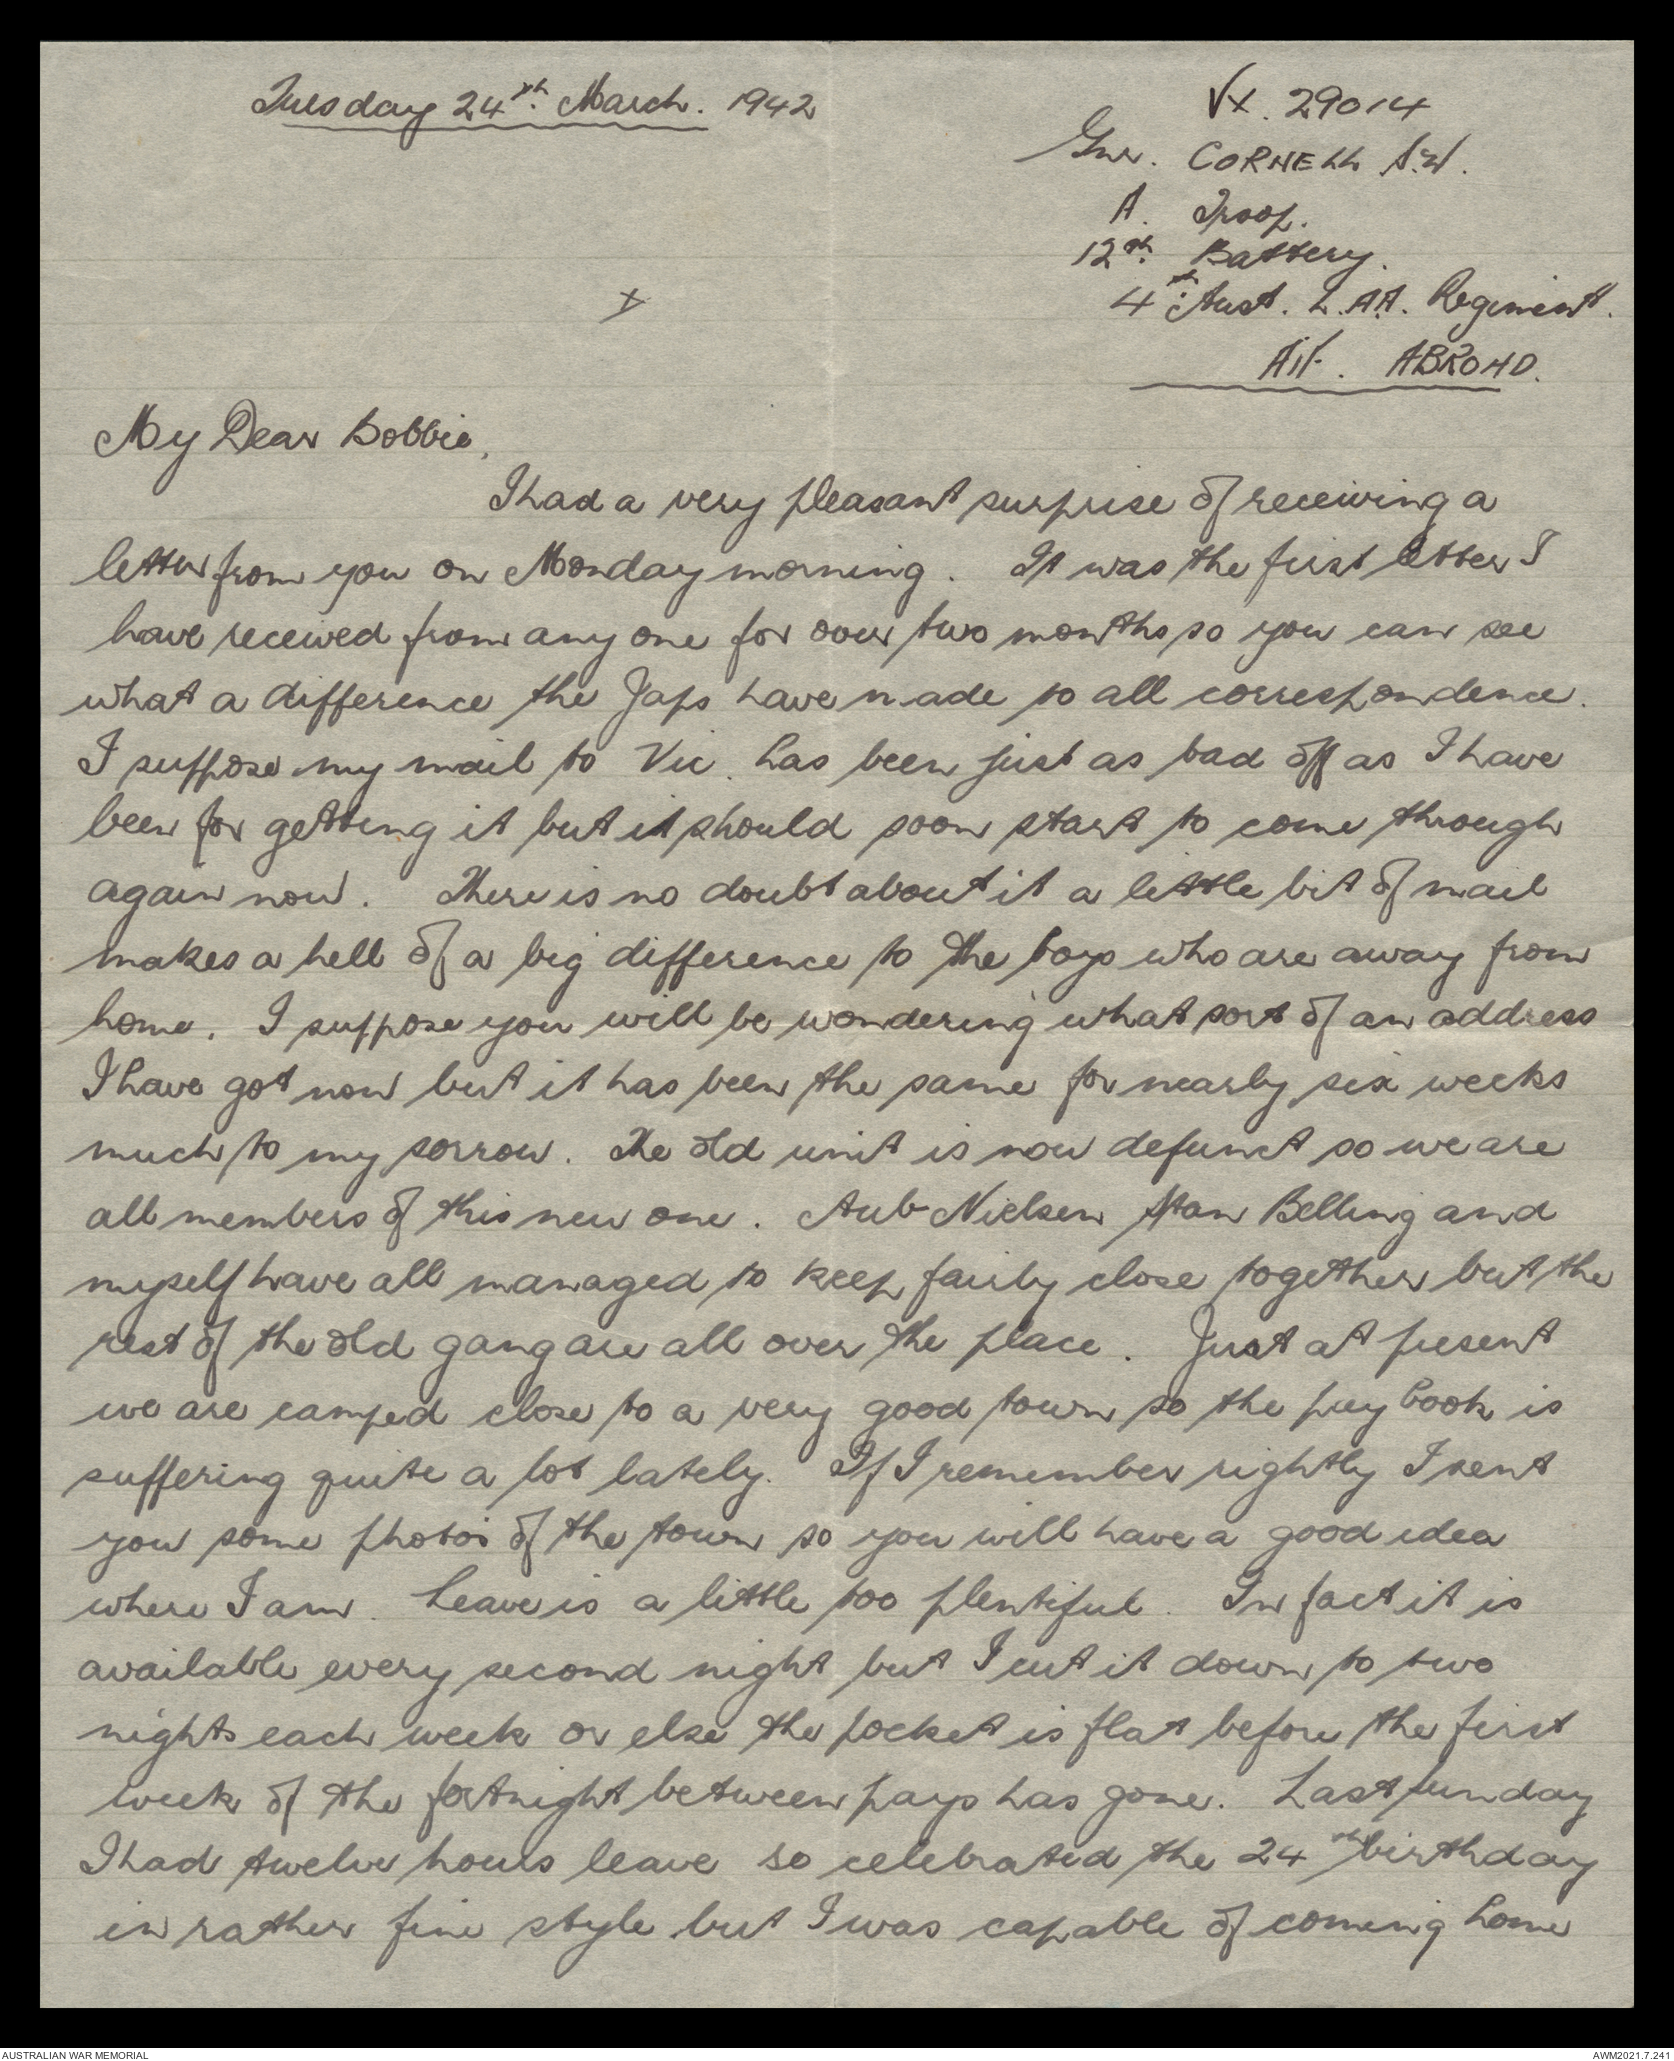 Tuesday 24th. March. 1942
VX. 29014
Gnr. CORNELL A.W.
A. Troop.
12th. Battery.
4th. Aust. L.AA. Regiment.
AIF. ABROAD.
My Dear Bobbie,
I had a very pleasant surprise of receiving a
letter from you on Monday morning. It was the first letter I
have received from any one for over two months so you can see
what a difference the Japs have made to all correspondence.
I suppose my mail to Vic. has been just as bad off as I have
been for getting it but it should soon start to come through
again now. There is no doubt about it a little bit of mail
makes a hell of a big difference to the boys who are away from
home. I suppose you will be wondering what sort of an address
I have got now but it has been the same for nearly six weeks
much to my sorrow. The old unit is now defunct so we are
all members of this new one. Aub Nielsen Stan Belling and
myself have all managed to keep fairly close together but the
rest of the old gang are all over the place. Just at present
we are camped close to a very good town so the pay book is
suffering quite a lot lately. If I remember rightly I sent
you some photos of the town so you will have a good idea
where I am. Leave is a little too plentiful. In fact it is
available every second night but I cut it down to two
nights each week or else the pocket is flat before the first
week of the fortnight between pays has gone. Last Sunday
I had twelve hours leave so celebrated the 24th birthday
in rather fine style but I was capable of coming home
AUSTRALIAN WAR MEMORIAL
AWM2021.7.241